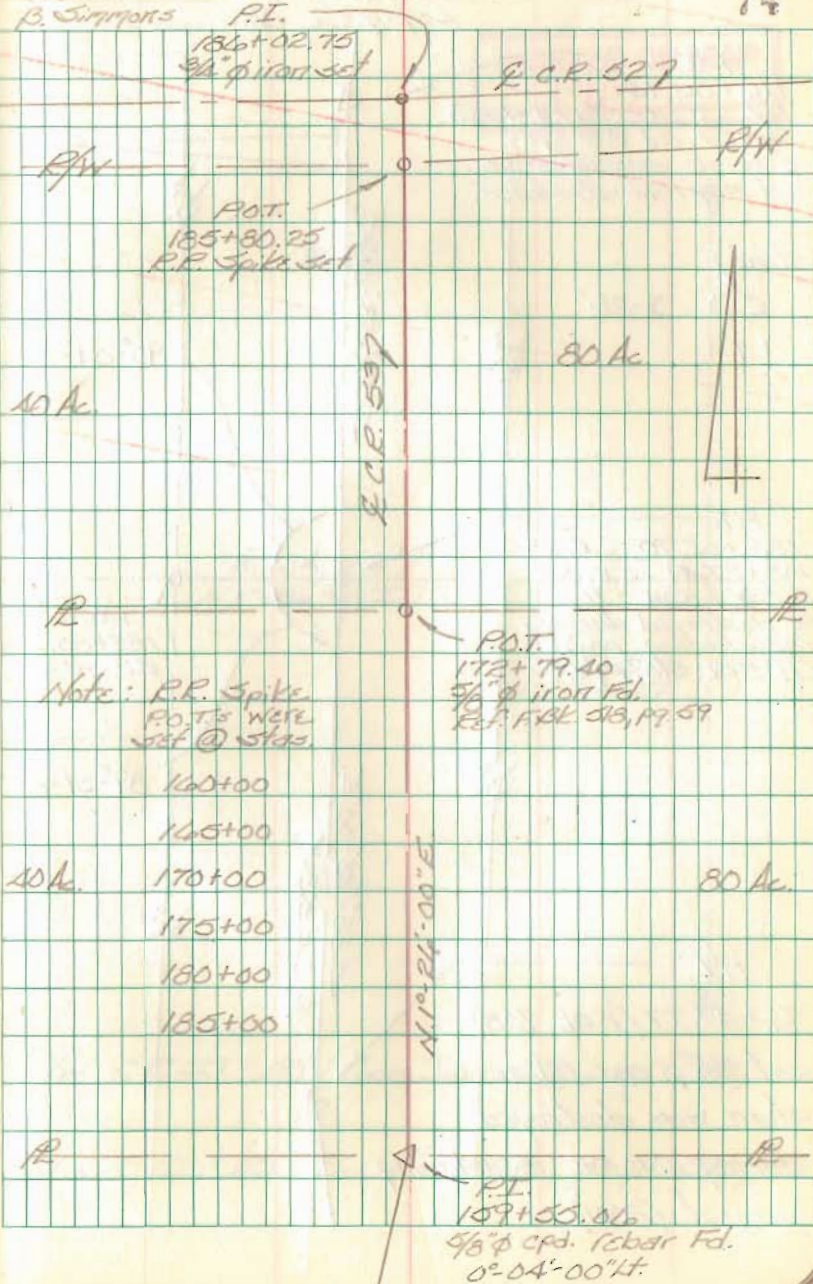 B. Simmons
P.I.
186+02.75
3/4" φ iron set
℄ C.R. 527
R/W
R/W
P.O.T.
185+80.25
R.R. Spike set
℄ C.R. 537
80 Ac.
40 Ac.
PL
PL
P.O.T.
172+79.40
5/8" φ iron Fd.
Ref. F.BK. 518, Pg. 59
Note: R.R. Spike
P.O.T.s were
set @ stas.
160+00
165+00
40 Ac.
170+00
80 Ac.
175+00
180+00
185+00
PL
PL
P.I.
159+55.06
5/8" φ cpd. rebar Fd.
0°-04'-00" Lt.